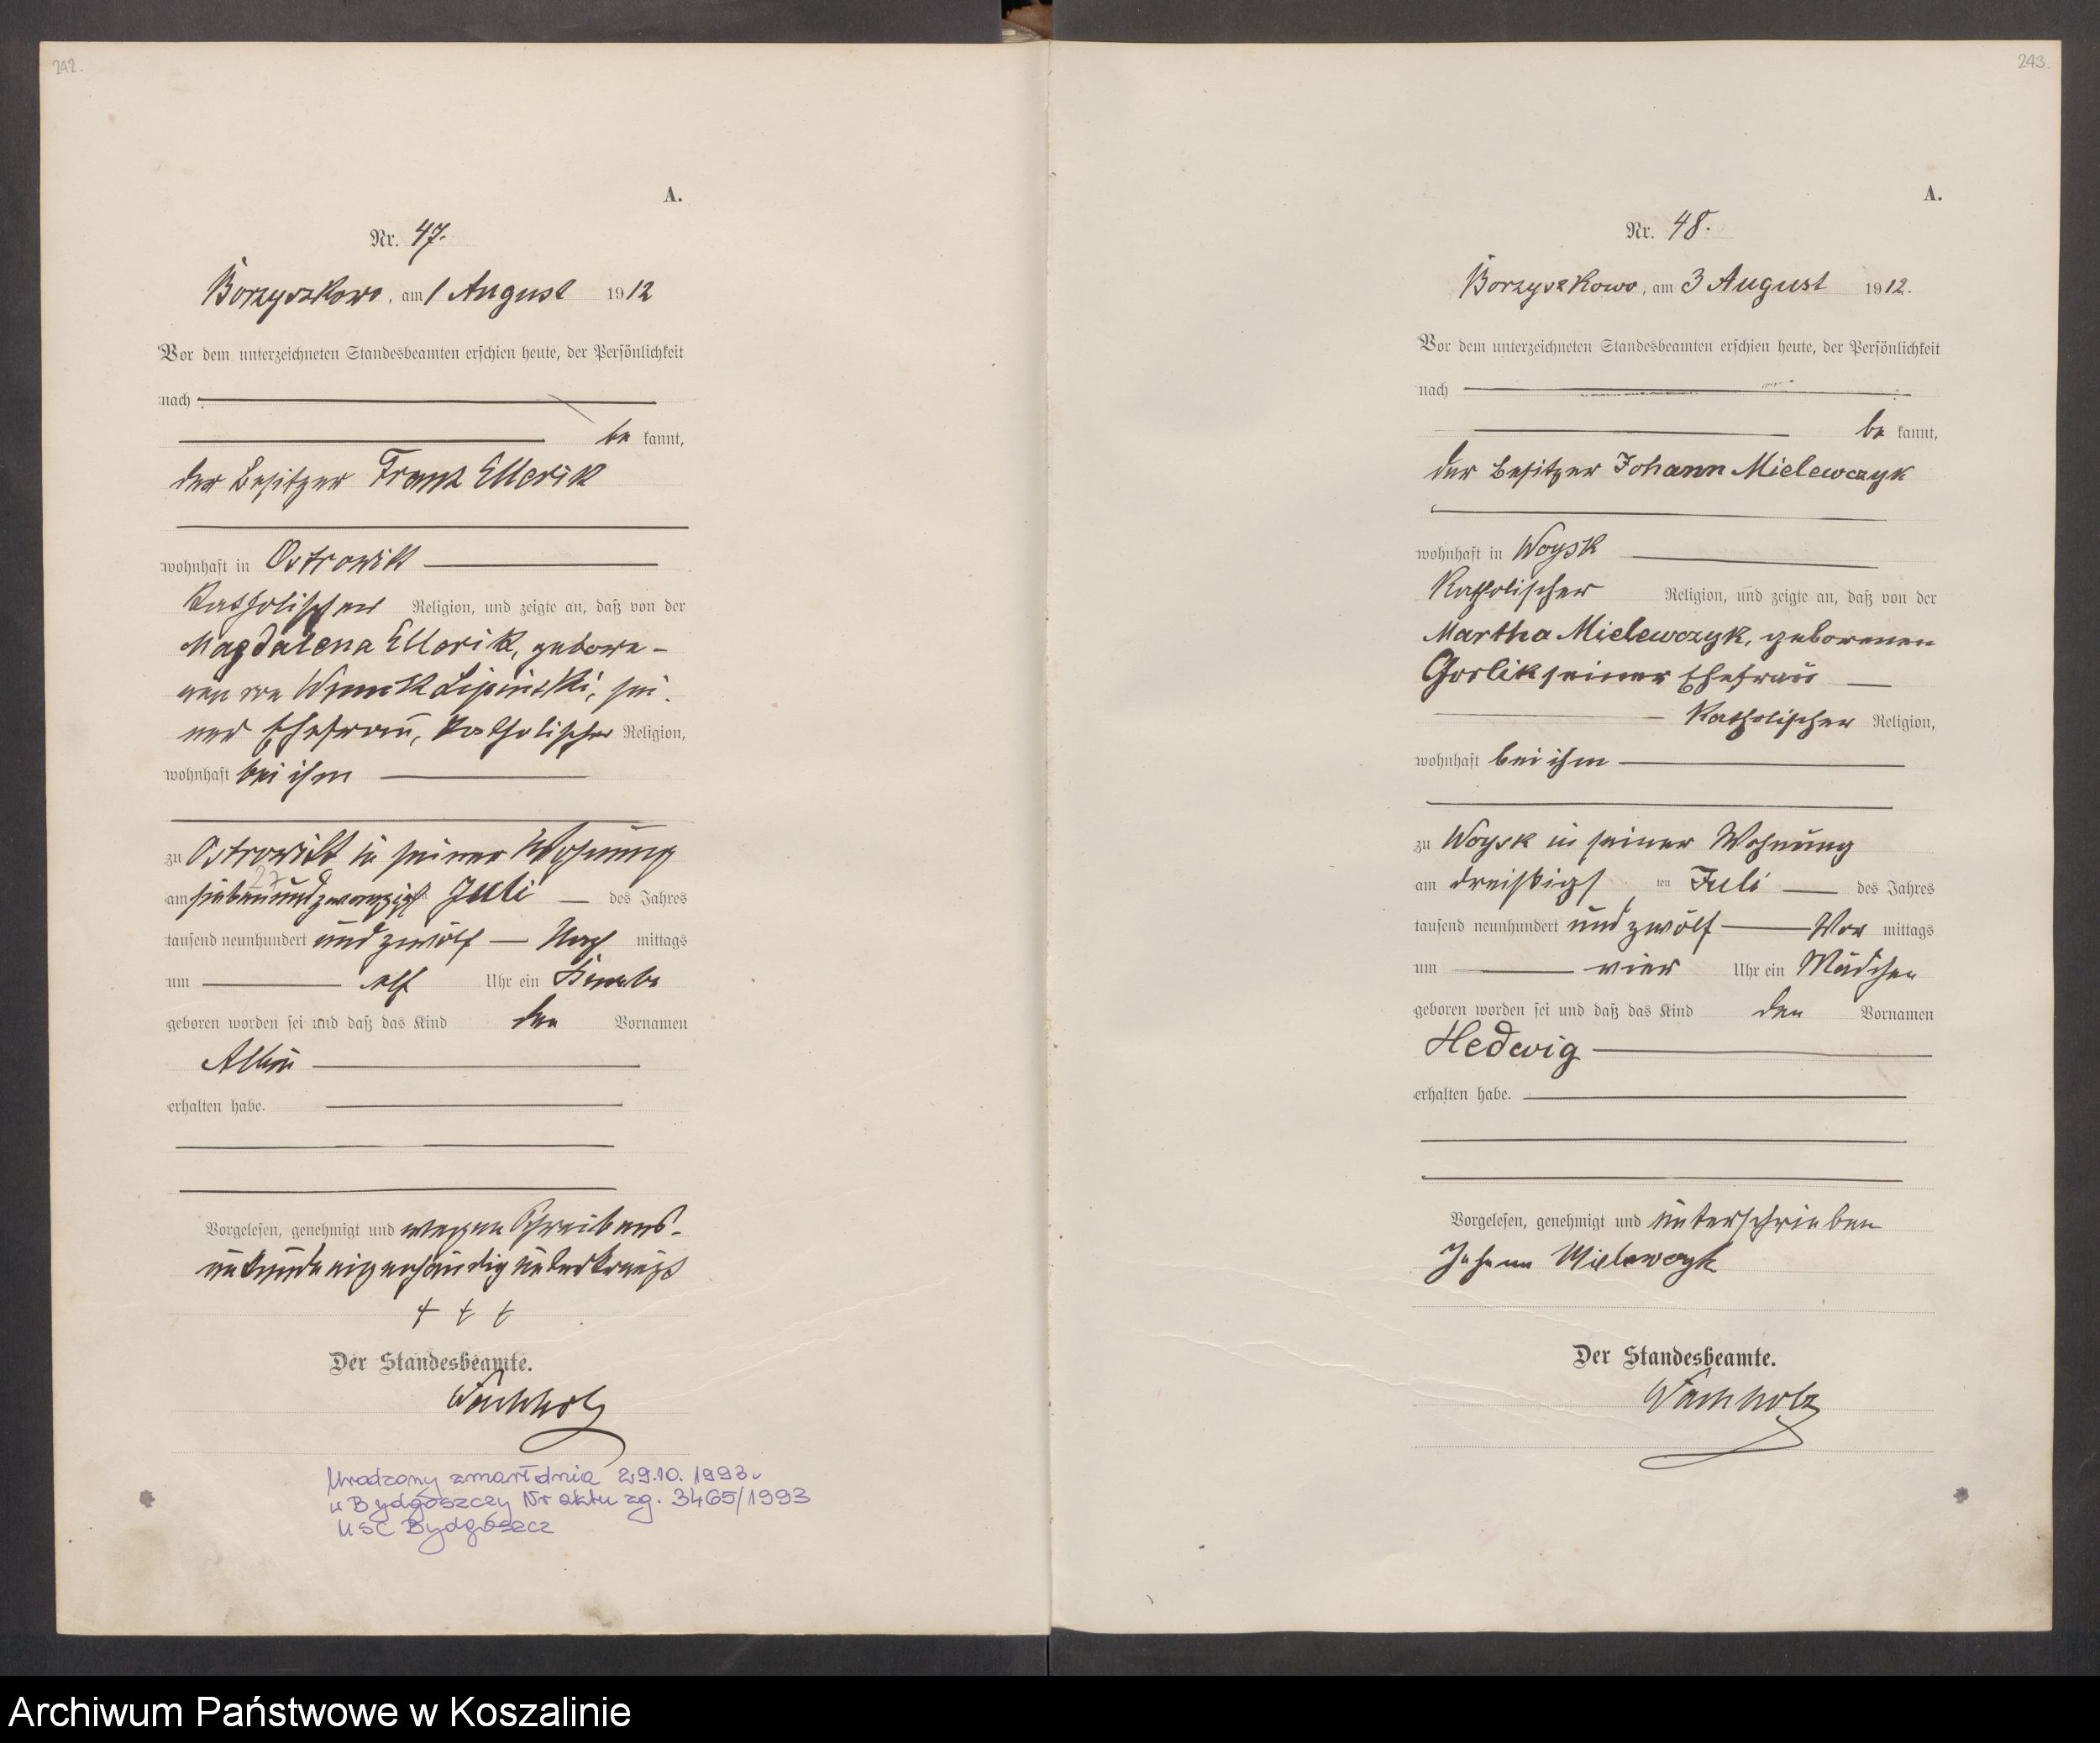 242.
A.
Nr. 47.
Borzyszkowo, am 1 August 1912
Vor dem unterzeichneten Standesbeamten erschien heute, der Persönlichkeit
nach
be kannt,
der Besitzer Franz Ellerik
wohnhaft in Ostrowitt
Katholischer Religion, und zeigte an, daß von der
Magdalena Ellerik, gebore-
nen von Wnuck Lipinski, sei-
ner Ehefrau, katholischer Religion,
wohnhaft bei ihm
zu Ostrowitt in seiner Wohnung
27
am siebenundzwanzigsten Juli des Jahres
tausend neunhundert und zwölf Nach mittags
um elf Uhr ein Knabe
geboren worden sei und daß das Kind den Vornamen
Albin
erhalten habe.
Vorgelesen, genehmigt und wegen Schreibens-
unkunde eigenhändig unterkreuzt
+ + +
Der Standesbeamte.
Wachholz
Urodzony zmarł dnia 29.10.1993.
w Bydgoszczy Nr aktu zg. 3465/1993
USC Bydgoszcz
243.
A.
Nr. 48.
Borzyszkowo, am 3 August 1912.
Vor dem unterzeichneten Standesbeamten erschien heute, der Persönlichkeit
nach
be kannt,
der Besitzer Johann Mielewczyk
wohnhaft in Woysk
Katholischer Religion, und zeigte an, daß von der
Martha Mielewczyk, geborenen
Gorlik seiner Ehefrau
Katholischer Religion,
wohnhaft bei ihm
zu Woysk in seiner Wohnung
am dreißigs ten Juli des Jahres
tausend neunhundert und zwölf Vor mittags
um vier Uhr ein Mädchen
geboren worden sei und daß das Kind den Vornamen
Hedwig
erhalten habe.
Vorgelesen, genehmigt und unterschrieben
Johann Mielewczyk
Der Standesbeamte.
Wachholz
Archiwum Państwowe w Koszalinie